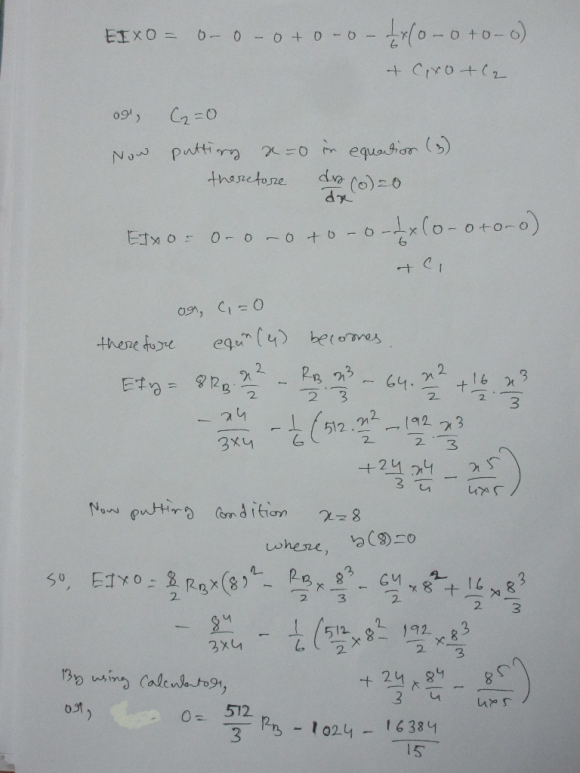 EI×0 = 0 - 0 - 0 + 0 - 0 - 1/6 × (0 - 0 + 0 - 0)
+ C₁×0 + C₂
or, C₂ = 0
Now putting x=0 in equation (3)
therefore dy/dx (0) = 0
EI×0 = 0 - 0 - 0 + 0 - 0 - 1/6 × (0 - 0 + 0 - 0)
+ C₁
or, C₁ = 0
therefore equⁿ (4) becomes.
EIy = 8R_B · x²/2 - R_B/2 · x³/3 - 64 · x²/2 + 16/2 · x³/3
- x⁴/(3×4) - 1/6 (512 · x²/2 - 192/2 · x³/3
+ 24/3 · x⁴/4 - x⁵/(4×5))
Now putting condition x=8
where, y(8)=0
So, EI×0 = 8/2 R_B × (8)² - R_B/2 × 8³/3 - 64/2 × 8² + 16/2 × 8³/3
- 8⁴/(3×4) - 1/6 (512/2 × 8² - 192/2 × 8³/3
By using calculator, + 24/3 × 8⁴/4 - 8⁵/(4×5))
or, 0 = 512/3 R_B - 1024 - 16384/15